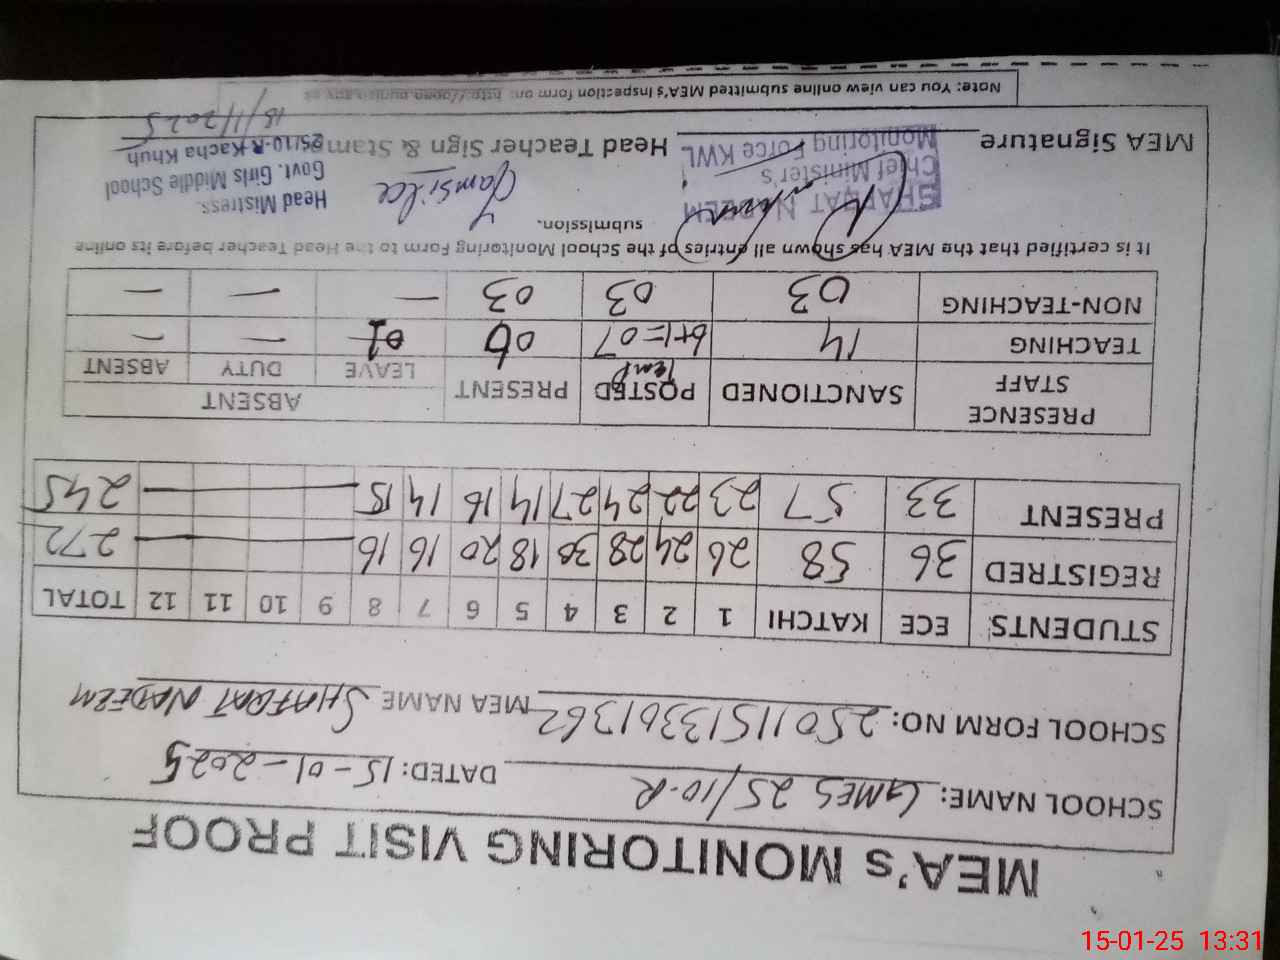 MEA's MONITORING VISIT PROOF
SCHOOL NAME: GMES 25/10-R DATED: 15-01-2025
SCHOOL FORM NO: 25011513361362 MEA NAME SHAFQAT NADEEM
STUDENTS ECE KATCHI 1 2 3 4 5 6 7 8 9 10 11 12 TOTAL
REGISTRED 36 58 26 24 28 30 18 20 16 16 — 272
PRESENT 33 57 23 22 24 27 14 16 14 15 — 245
PRESENCE STAFF SANCTIONED POSTED Temp PRESENT ABSENT
LEAVE DUTY ABSENT
TEACHING 14 6+1=07 06 01 — —
NON-TEACHING 03 03 03 — — —
It is certified that the MEA has shown all entries of the School Monitoring Form to the Head Teacher before its online
submission.
SHAFQAT NADEEM
Chief Minister's
Monitoring Force KWL
Head Mistress.
Govt. Girls Middle School
25/10-R Kacha Khuh
MEA Signature Head Teacher Sign & Stamp
15/1/2025
Note: You can view online submitted MEA's inspection form on:
15-01-25 13:31